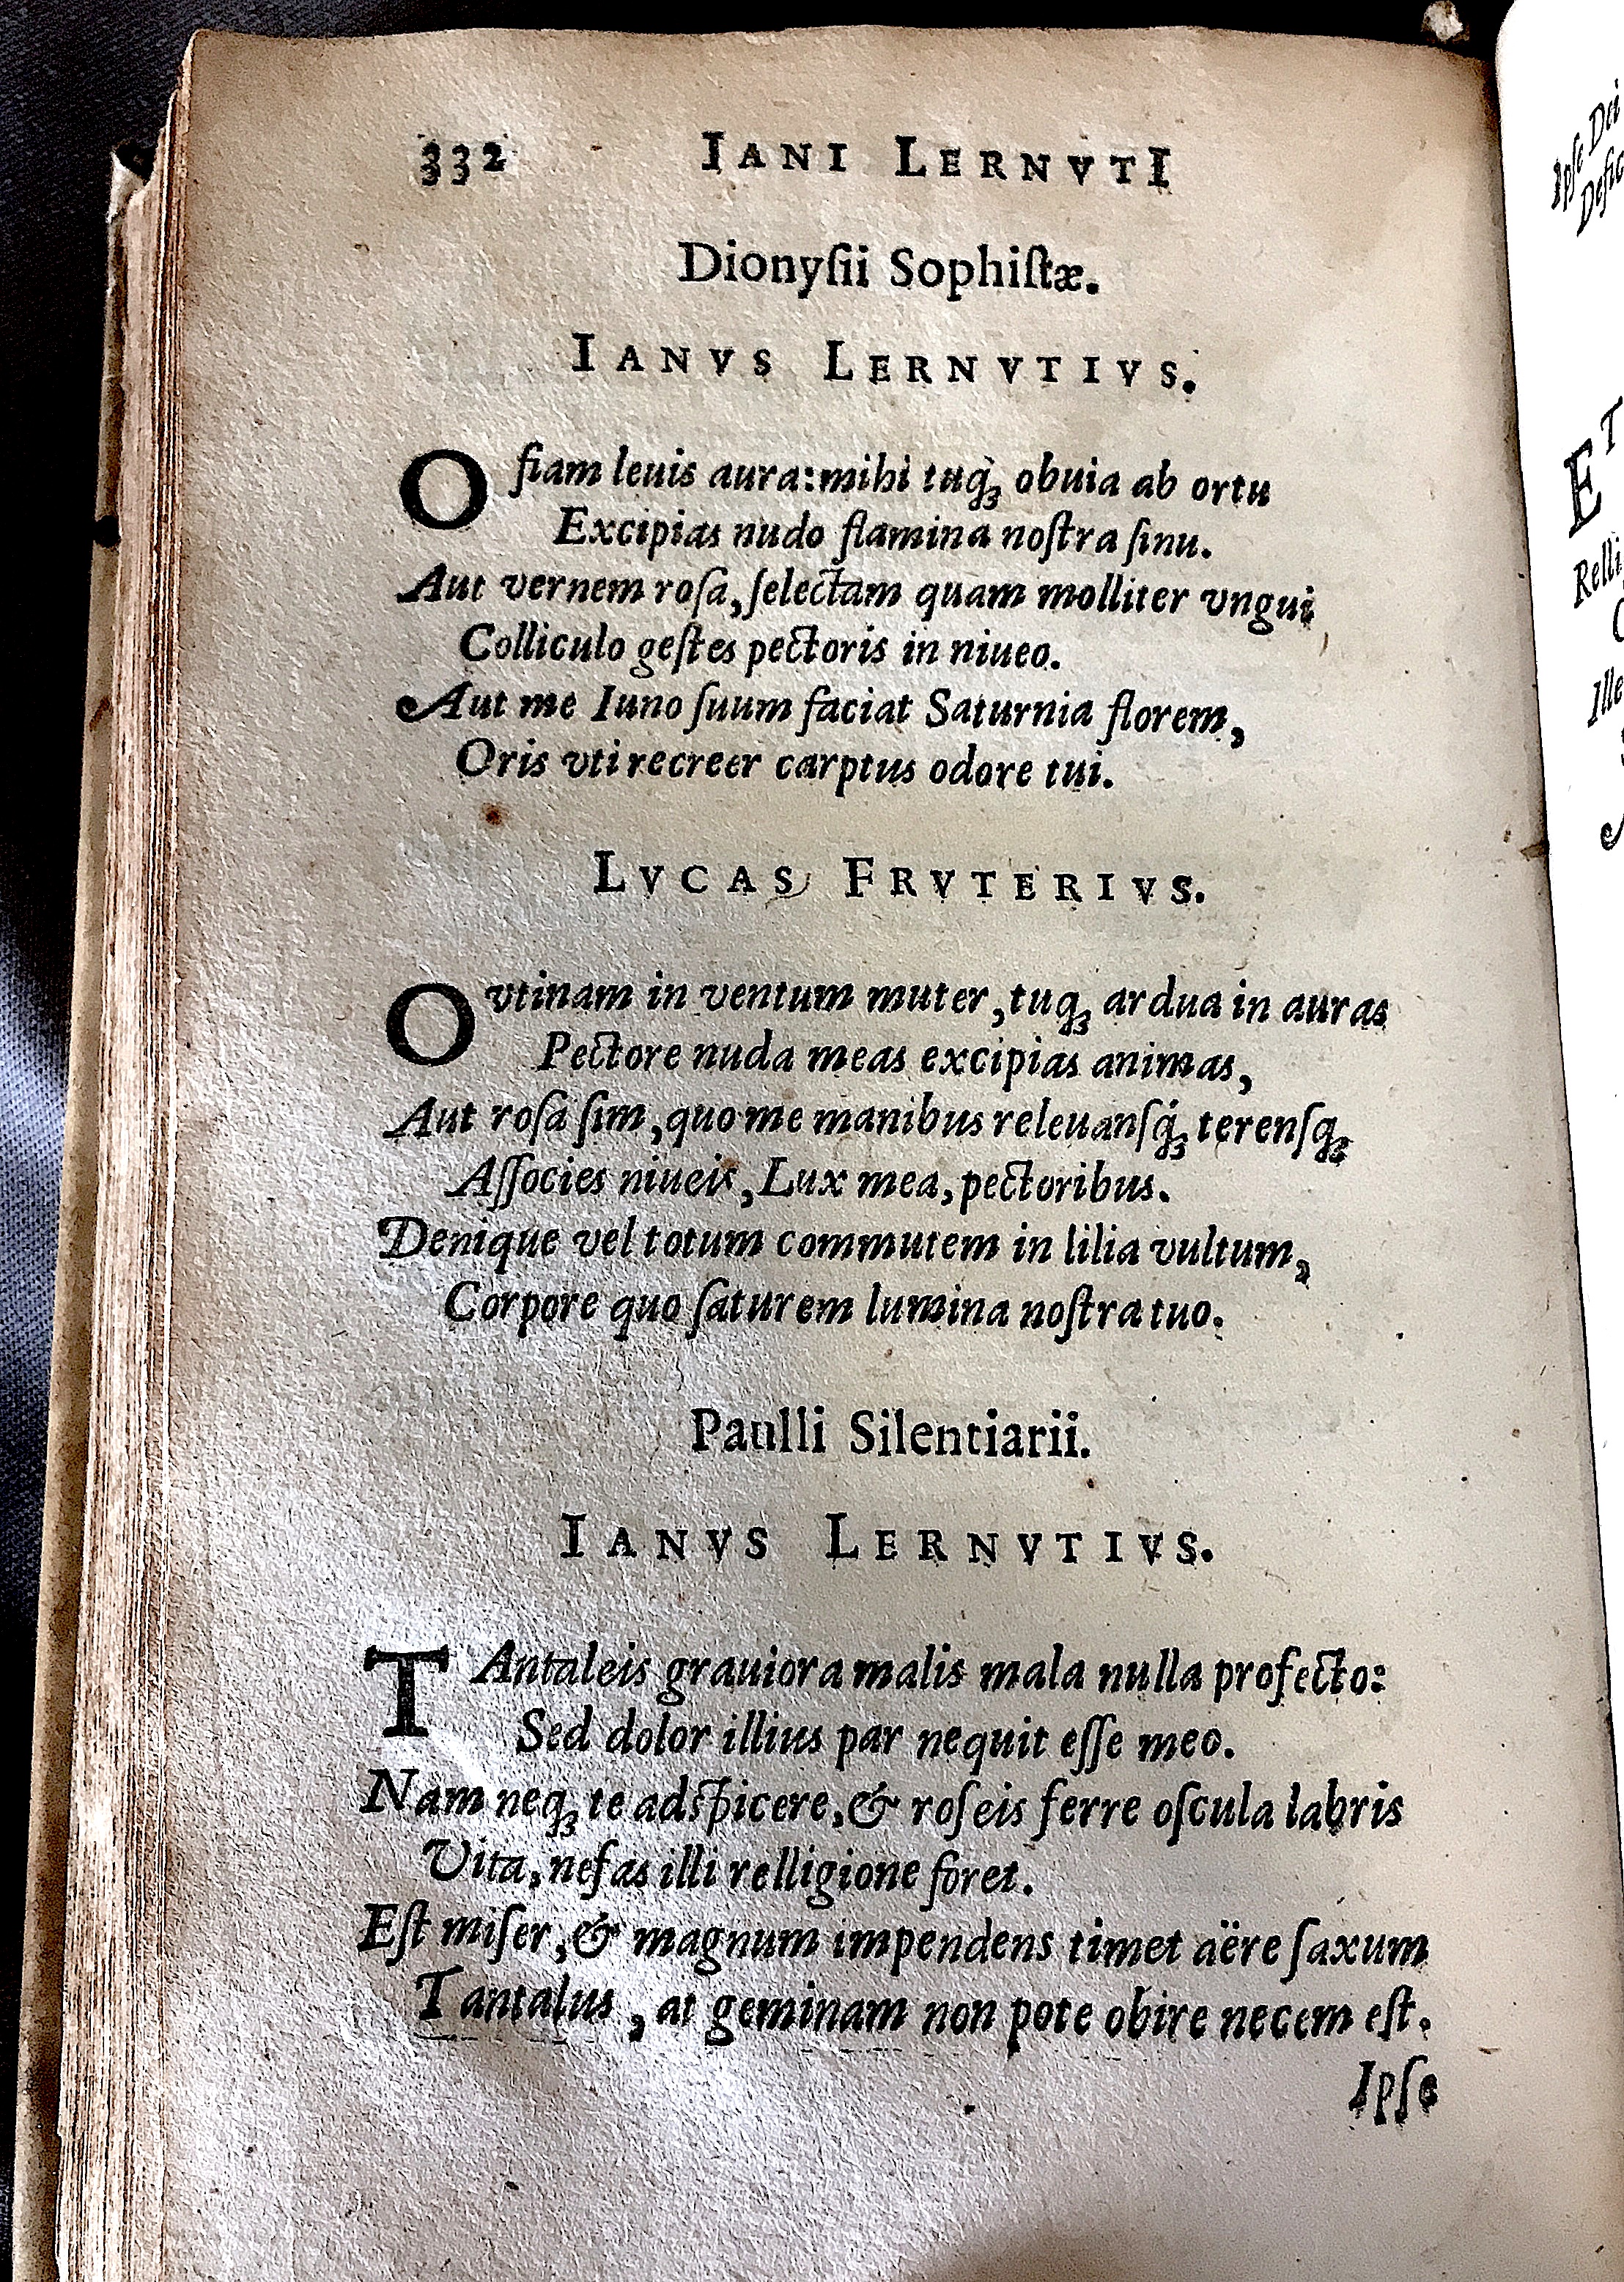 332 IANI LERNVTI
Dionyſii Sophiſtæ.
IANVS LERNVTIVS.
O fiam leuis aura: mihi tuq́ꝫ obuia ab ortu
Excipias nudo flamina noſtra ſinu.
Aut vernem roſa, ſelectam quam molliter vngui
Colliculo geſtes pectoris in niueo.
Aut me Iuno ſuum faciat Saturnia florem,
Oris vti recreer carptus odore tui.
LVCAS FRVTERIVS.
O vtinam in ventum muter, tuqꝫ ardua in auras
Pectore nuda meas excipias animas,
Aut roſa ſim, quo me manibus releuanſq́ꝫ terenſqꝫ
Aſſocies niueis, Lux mea, pectoribus.
Denique vel totum commutem in lilia vultum,
Corpore quo ſaturem lumina noſtra tuo.
Paulli Silentiarii.
IANVS LERNVTIVS.
TAntaleis grauiora malis mala nulla profecto:
Sed dolor illius par nequit eſſe meo.
Nam neqꝫ te adſpicere, & roſeis ferre oſcula labris
Vita, nefas illi relligione foret.
Eſt miſer, & magnum impendens timet aëre ſaxum
Tantalus, at geminam non pote obire necem eſt.
Ipſe
Ipſe Dei